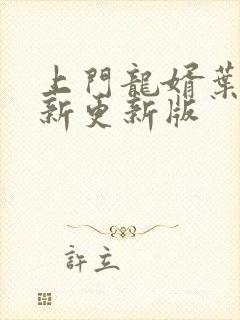 上門龍婿葉
新更新版
許立